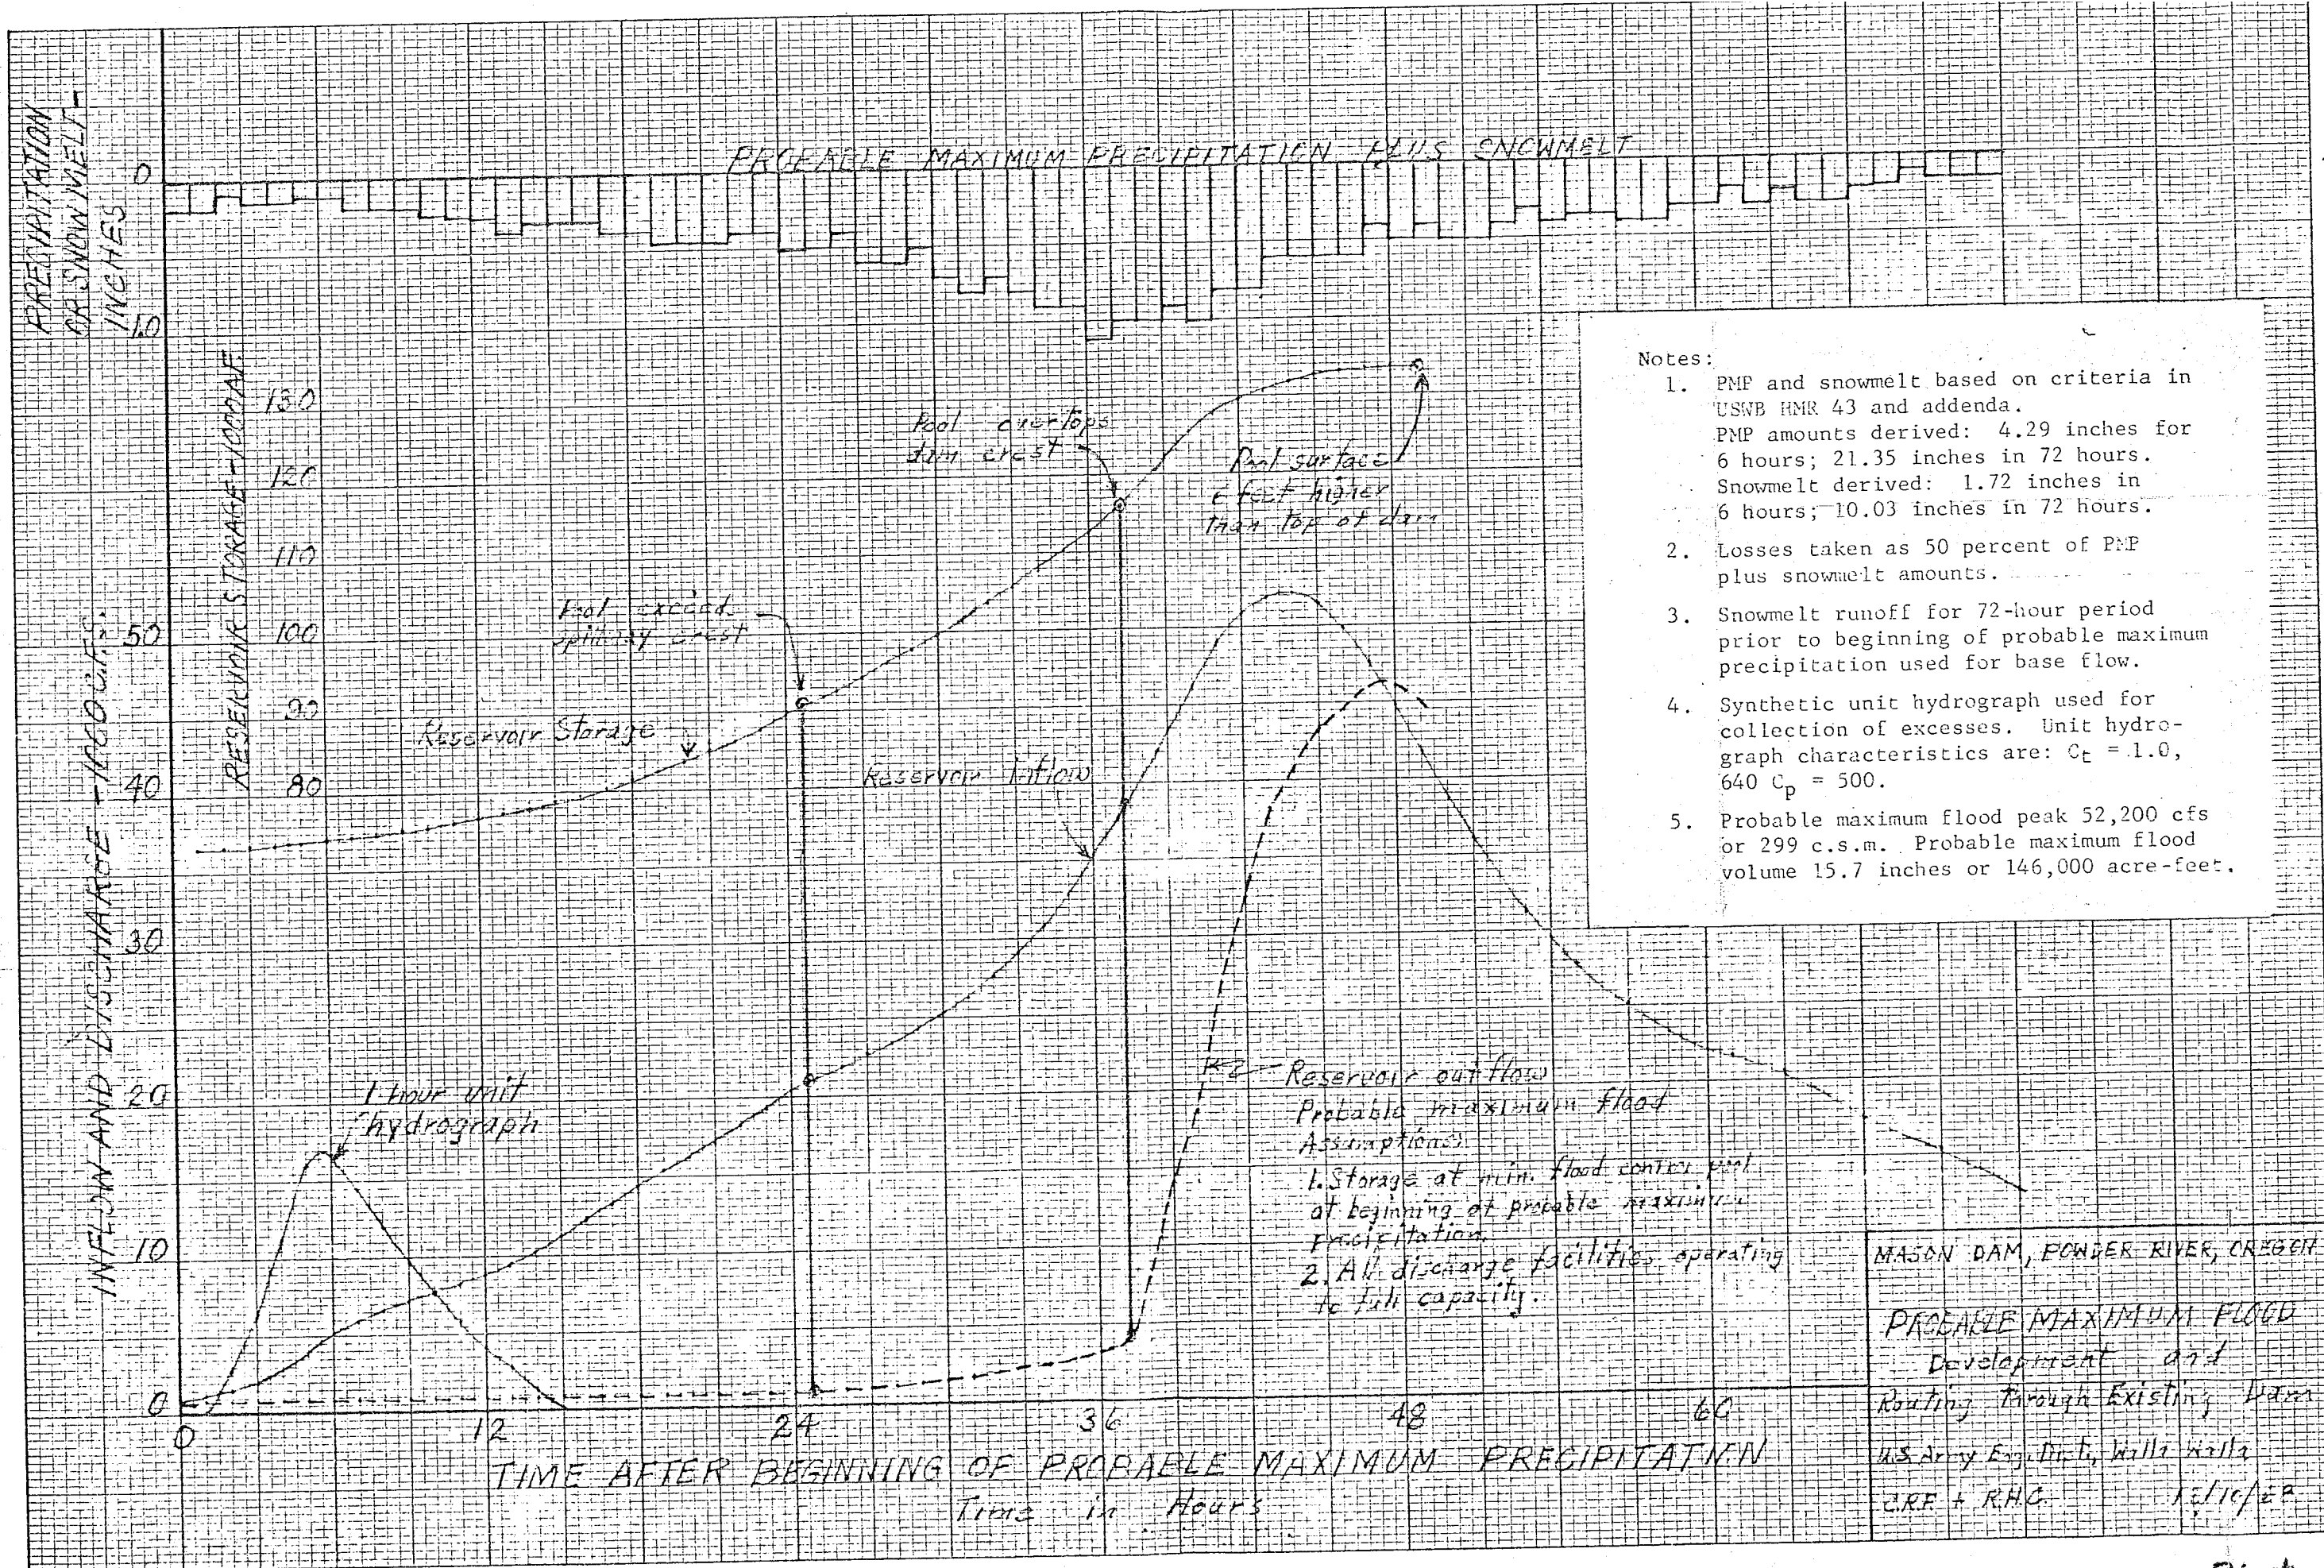 PRECIPITATION
OR SNOWMELT -
INCHES
0
1.0
PROBABLE MAXIMUM PRECIPITATION PLUS SNOWMELT
RESERVOIR STORAGE-1000AF
130
120
110
100
90
80
INFLOW AND DISCHARGE - 1000 C.F.S.
50
40
30
20
10
0
Pool overtops
dam crest
Pool surface
feet higher
than top of dam
Pool exceed
spillway crest
Reservoir Storage
Reservoir inflow
1 hour unit
hydrograph
Reservoir outflow
Probable maximum flood
Assumptions
1. Storage at min. flood control pool
at beginning of probable maximum
precipitation.
2. All discharge facilities operating
to full capacity.
Notes:
1. PMP and snowmelt based on criteria in
USWB HMR 43 and addenda.
PMP amounts derived: 4.29 inches for
6 hours; 21.35 inches in 72 hours.
Snowmelt derived: 1.72 inches in
6 hours; 10.03 inches in 72 hours.
2. Losses taken as 50 percent of PMP
plus snowmelt amounts.
3. Snowmelt runoff for 72-hour period
prior to beginning of probable maximum
precipitation used for base flow.
4. Synthetic unit hydrograph used for
collection of excesses. Unit hydro-
graph characteristics are: Ct = 1.0,
640 Cp = 500.
5. Probable maximum flood peak 52,200 cfs
or 299 c.s.m. Probable maximum flood
volume 15.7 inches or 146,000 acre-feet.
0 12 24 36 48 60
TIME AFTER BEGINNING OF PROBABLE MAXIMUM PRECIPITATION
Time in Hours
MASON DAM, POWDER RIVER, OREGON
PROBABLE MAXIMUM FLOOD
Development and
Routing Through Existing Dam
U.S. Army Eng. Dist., Walla Walla